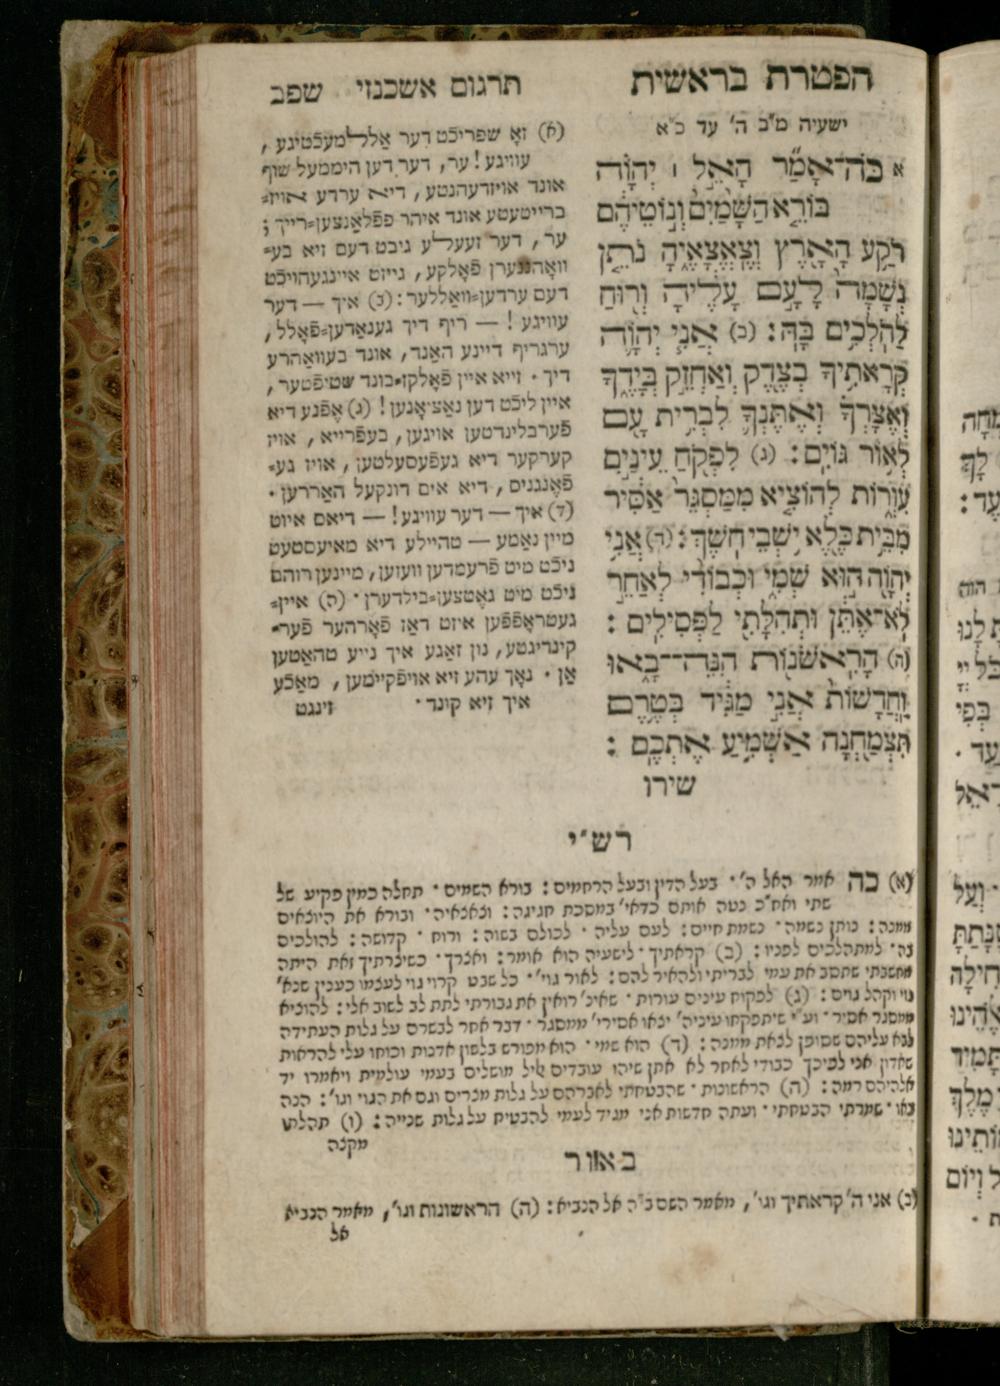 הפטרת בראשית תרגום אשכנזי שפב
ישעיה מ״ב ה' עד כ״א
א כֹּה־אָמַר הָאֵל ׀ יְהֹוָה
בּוֹרֵא הַשָּׁמַיִם וְנוֹטֵיהֶם
רֹקַע הָאָרֶץ וְצֶאֱצָאֶיהָ נֹתֵן
נְשָׁמָה לָעָם עָלֶיהָ וְרוּחַ
לַהֹלְכִים בָּהּ : (ב) אֲנִי יְהֹוָה
קְרָאתִיךָ בְצֶדֶק וְאַחְזֵק בְּיָדֶךָ
וְאֶצָּרְךָ וְאֶתֶּנְךָ לִבְרִית עָם
לְאוֹר גּוֹיִם : (ג) לִפְקֹחַ עֵינַיִם
עִוְרוֹת לְהוֹצִיא מִמַּסְגֵּר אַסִּיר
מִבֵּית כֶּלֶא יֹשְׁבֵי חֹשֶׁךְ : (ד) אֲנִי
יְהֹוָה הוּא שְׁמִי וּכְבוֹדִי לְאַחֵר
לֹא־אֶתֵּן וּתְהִלָּתִי לַפְּסִילִים :
(ה) הָרִאשֹׁנוֹת הִנֵּה־בָאוּ
וַחֲדָשׁוֹת אֲנִי מַגִּיד בְּטֶרֶם
תִּצְמַחְנָה אַשְׁמִיעַ אֶתְכֶם :
שירו
(א) זאָ שפריכֿט דער אַללמעכֿטיגע ,
עוויגע ! ער, דער דען היממעל שוף
אונד אויזדעהנטע, דיא ערדע אויז=
ברייטעטע אונד איהר פפֿלאַנצען=רייך ;
ער , דער זעעלע גיבט דעם זיא בע=
וואָהנערן פֿאָלקע , גייזט איינגעהויכֿט
דעם ערדען=וואַללער : (ב) איך — דער
עוויגע ! — ריף דיך געגאַדען=פֿאָלל ,
ערגריף דיינע האַנד, אונד בעוואַהרע
דיך . זייא איין פֿאָלקז=בונד שטיפֿטער ,
איין ליכֿט דען נאַציאָנען ! (ג) אֶפֿנע דיא
פֿערבלינדטען אויגען , בעפֿרייא , אויז
קערקער דיא געפֿעסעלטען , אויז גע=
פֿאֶנגניס , דיא אים דונקעל האַררען .
(ד) איך — דער עוויגע ! — דיאס איזט
מיין נאַמע — טהיילע דיא מאיעסטעט
ניכֿט מיט פֿרעמדען וועזען, מיינען רוהם
ניכֿט מיט גאֶטצען=בילדערן . (ה) איין=
געטראָפֿפֿען איזט דאַז פֿאָרהער פֿער=
קינדיגטע, נון זאַגע איך נייע טהאַטען
אָן . נאָך עהע זיא אויפֿקיימען , מאַכֿע
איך זיא קונד . זינגט
רש״י
(א) כה אמר האל ה' . בעל הדין ובעל הרחמים : בורא השמים . תחלה כמין פקיע של
שתי ואח״כ נטה אותם כדאי' במסכת חגיגה : וצאצאיה . ובורא את היוצאים
ממנה : נותן נשמה . נשמת חיים : לעם עליה . לכולם בשוה : ורוח . קדושה : להולכים
בה . למתהלכים לפניו : (ב) קראתיך . לישעיה הוא אומר : ואצרך . כשיצרתיך זאת היתה
מחשבתי שתסב את עמי לבריתי ולהאיר להם : לאור גוי' . כל שבט קרוי גוי לעצמו כענין שנא'
גוי וקהל גוים : (ג) לפקוח עינים עורות . שאינ' רואין את גבורתי לתת לב לשוב אלי : להוציא
ממסגר אסיר . וע״י שיתפקחו עיניה' יצאו אסירי' ממסגר . דבר אחר לבשרם על גלות העתידה
לבא עליהם שסופן לצאת ממנה : (ד) הוא שמי . הוא מפורש בלשון אדנות וכוחו עלי להראות
שאדון אני לפיכך כבודי לאחר לא אתן שיהו עובדים ליל מושלים בעמי עולמית ויאמרו יד
אלהיהם רמה : (ה) הראשונות . שהבטחתי לאברהם על גלות מצרים וגם את הגוי וגו' : הנה
באו . שמרתי הבטחתי . ועתה חדשות אני מגיד לעמי להבטיח על גלות שנייה : (ו) תהלתו
מקצה
באור
(ב) אני ה' קראתיך וגו' , מאמר השם ב״ה אל הנביא : (ה) הראשונות וגו' , מאמר הנביא
אל